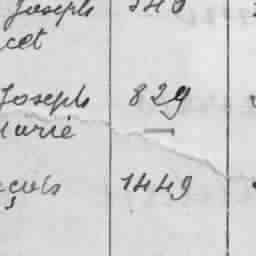 Joseph 340
cet
Joseph 829
Marie —
çois 1449